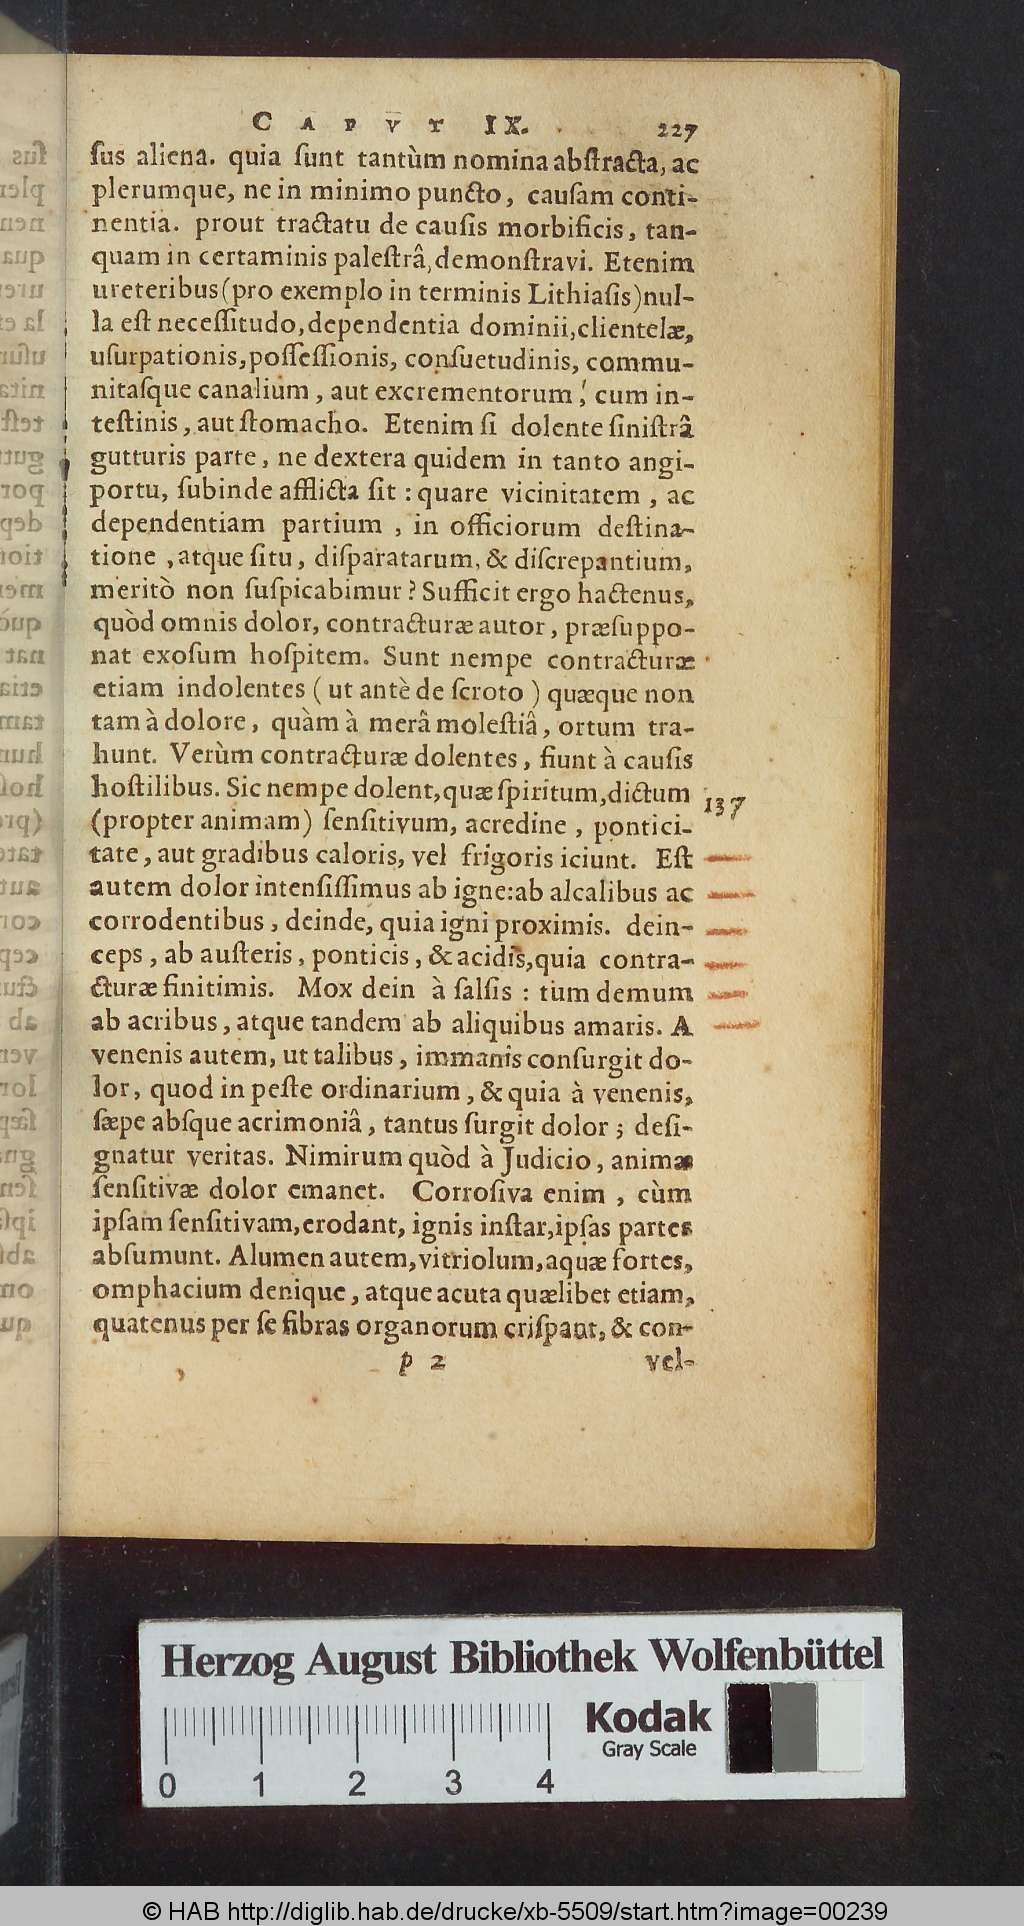 CAPVT IX. 227
ſus aliena. quia ſunt tantùm nomina abſtracta, ac
plerumque, ne in minimo puncto, cauſam conti-
nentia. prout tractatu de cauſis morbificis, tan-
quam in certaminis paleſtrâ, demonſtravi. Etenim
ureteribus (pro exemplo in terminis Lithiaſis) nul-
la eſt neceſſitudo, dependentia dominii, clientelæ,
uſurpationis, poſſeſſionis, conſuetudinis, commu-
nitaſque canalium, aut excrementorum, cum in-
teſtinis, aut ſtomacho. Etenim ſi dolente ſiniſtrâ
gutturis parte, ne dextera quidem in tanto angi-
portu, ſubinde afflicta ſit: quare vicinitatem, ac
dependentiam partium, in officiorum deſtina-
tione, atque ſitu, diſparatarum, & diſcrepantium,
meritò non ſuſpicabimur? Sufficit ergo hactenus,
quòd omnis dolor, contracturæ autor, præſuppo-
nat exoſum hoſpitem. Sunt nempe contracturæ
etiam indolentes (ut antè de ſcroto) quæque non
tam à dolore, quàm à merâ moleſtiâ, ortum tra-
hunt. Verùm contracturæ dolentes, fiunt à cauſis
hoſtilibus. Sic nempe dolent, quæ ſpiritum, dictum
137
(propter animam) ſenſitivum, acredine, pontici-
tate, aut gradibus caloris, vel frigoris iciunt. Eſt
autem dolor intenſiſſimus ab igne: ab alcalibus ac
corrodentibus, deinde, quia igni proximis. dein-
ceps, ab auſteris, ponticis, & acidis, quia contra-
cturæ finitimis. Mox dein à ſalſis: tum demum
ab acribus, atque tandem ab aliquibus amaris. A
venenis autem, ut talibus, immanis conſurgit do-
lor, quod in peſte ordinarium, & quia à venenis,
ſæpe abſque acrimoniâ, tantus ſurgit dolor; deſi-
gnatur veritas. Nimirum quòd à Judicio, animæ
ſenſitivæ dolor emanet. Corroſiva enim, cùm
ipſam ſenſitivam, erodant, ignis inſtar, ipſas partes
abſumunt. Alumen autem, vitriolum, aquæ fortes,
omphacium denique, atque acuta quælibet etiam,
quatenus per ſe fibras organorum criſpant, & con-
p 2 vel-
Herzog August Bibliothek Wolfenbüttel
Kodak
Gray Scale
0 1 2 3 4
© HAB http://diglib.hab.de/drucke/xb-5509/start.htm?image=00239